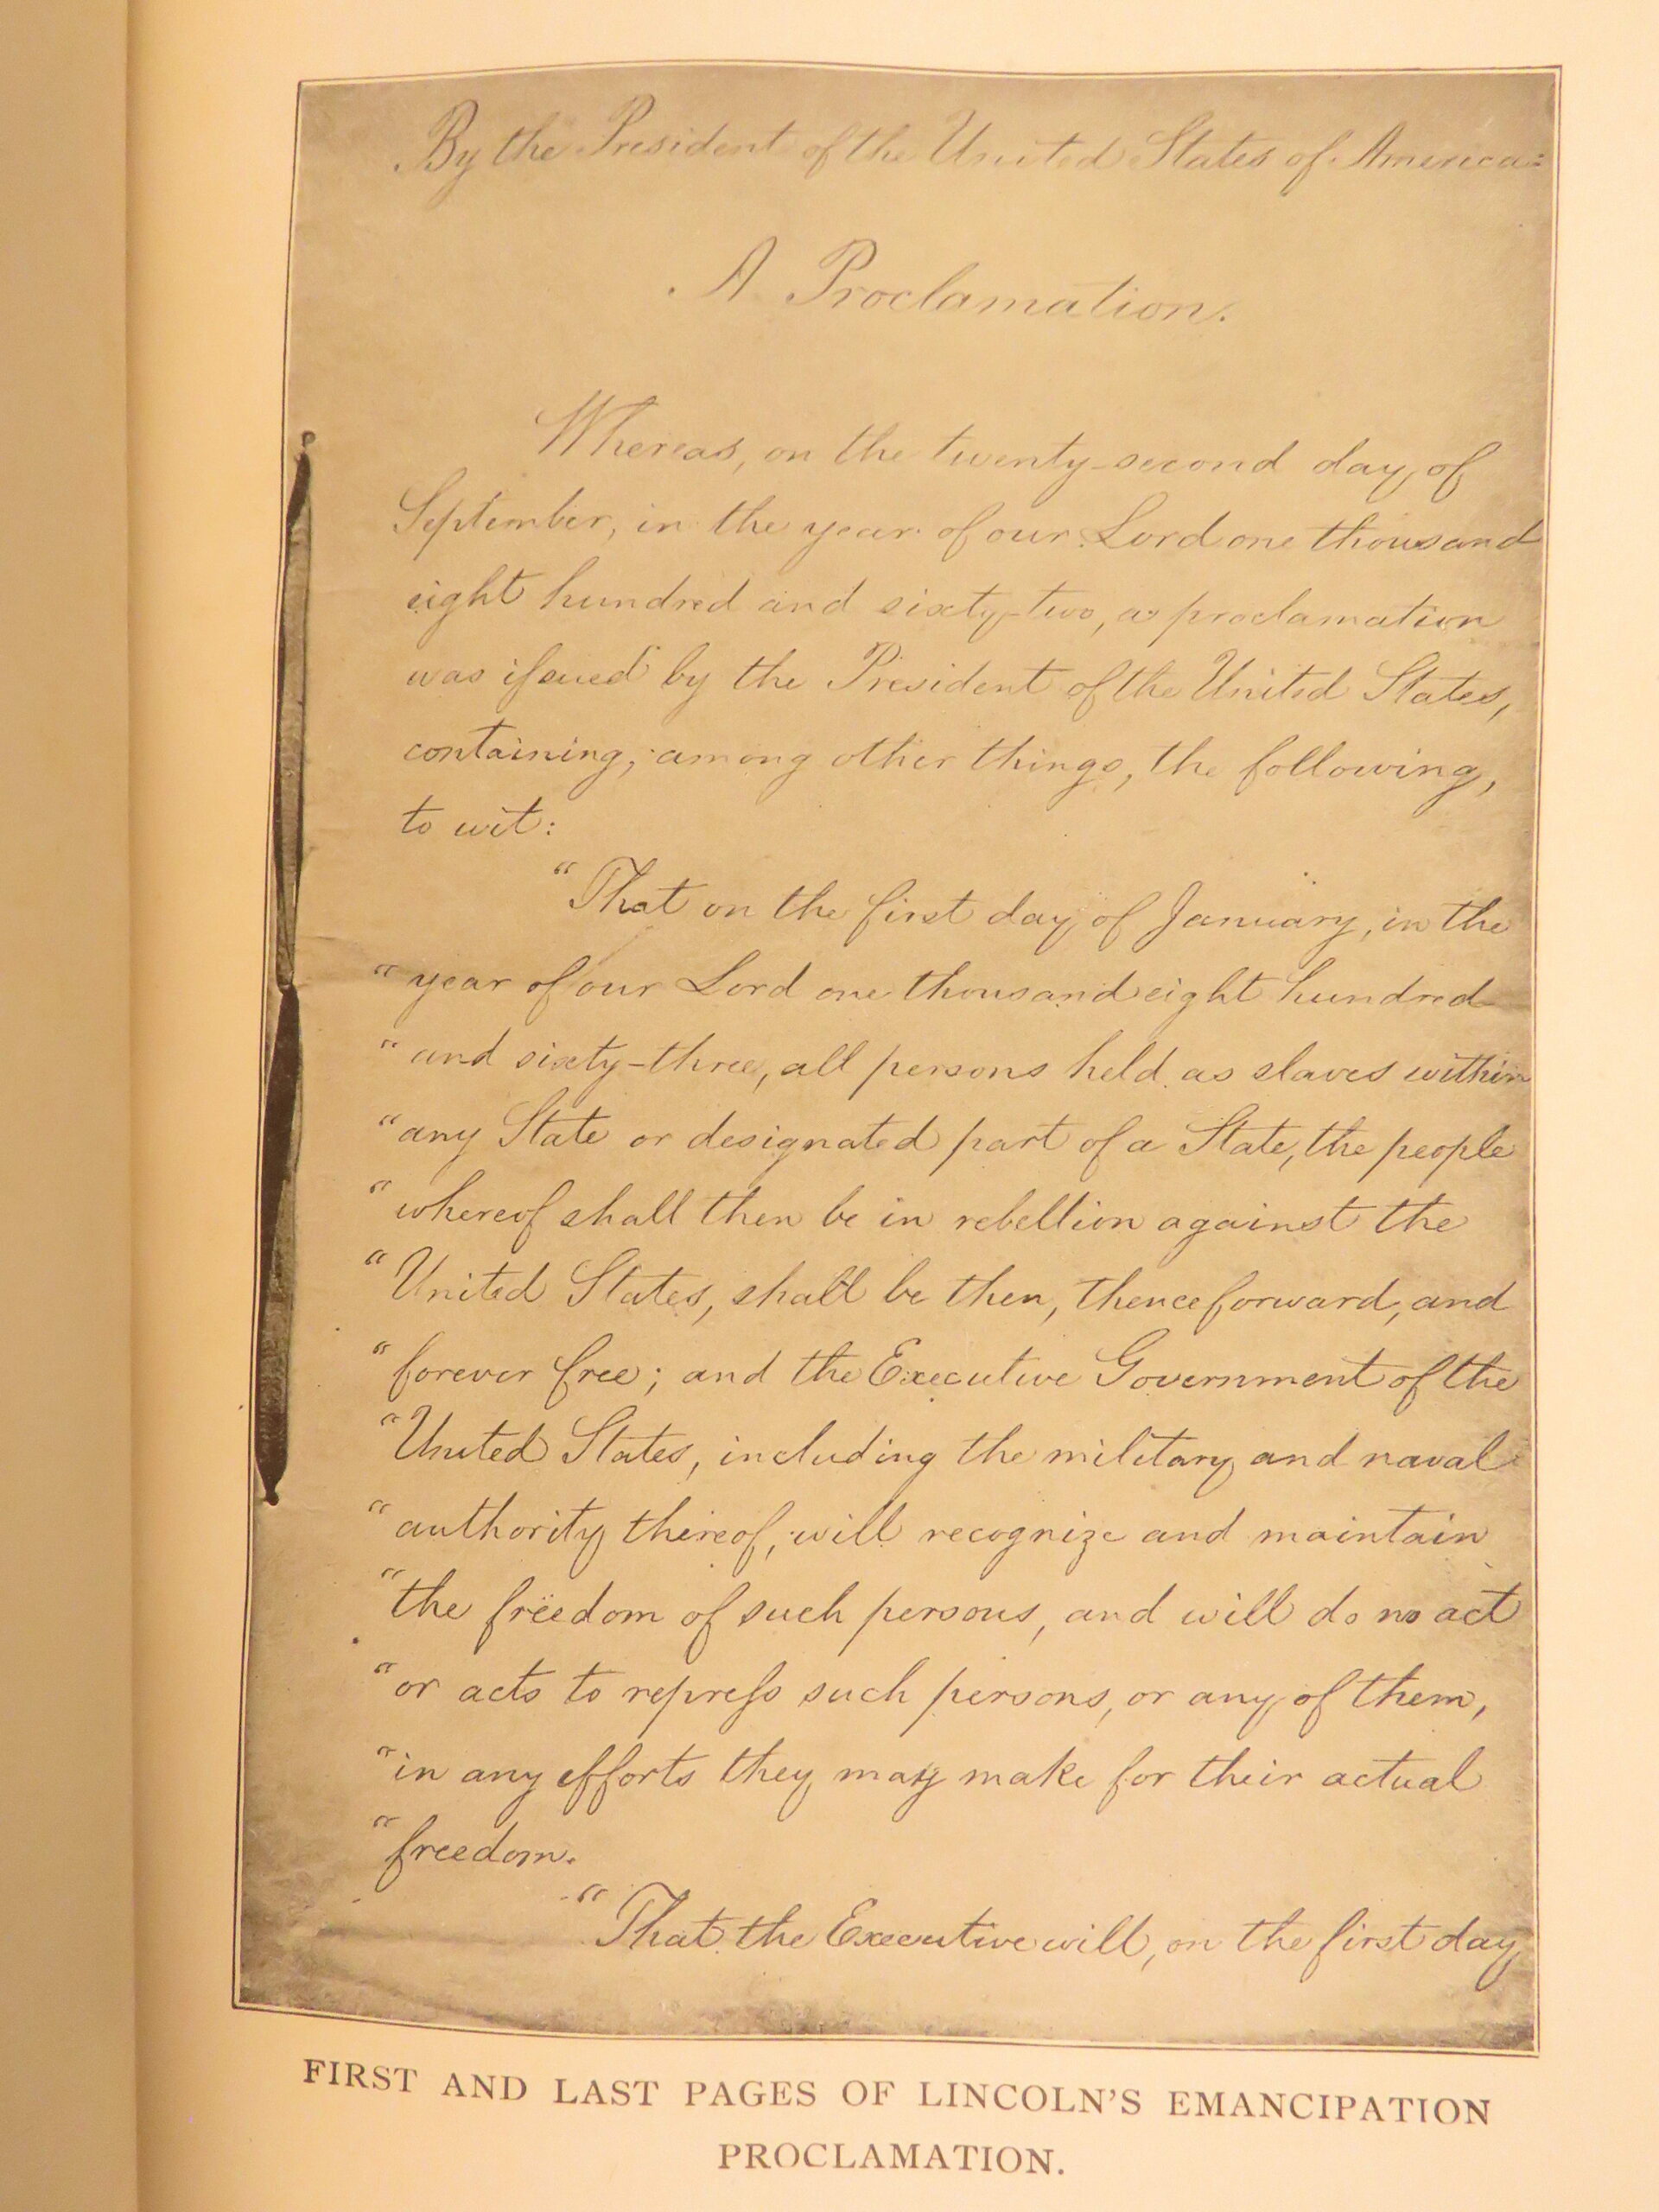 By the President of the United States of America:
A Proclamation.
Whereas, on the twenty-second day of
September, in the year of our Lord one thousand
eight hundred and sixty-two, a proclamation
was issued by the President of the United States,
containing, among other things, the following,
to wit:
"That on the first day of January, in the
"year of our Lord one thousand eight hundred
"and sixty-three, all persons held as slaves within
"any State or designated part of a State, the people
"whereof shall then be in rebellion against the
"United States, shall be then, thenceforward, and
"forever free; and the Executive Government of the
"United States, including the military and naval
"authority thereof, will recognize and maintain
"the freedom of such persons, and will do no act
"or acts to repress such persons, or any of them,
"in any efforts they may make for their actual
"freedom.
"That the Executive will, on the first day
FIRST AND LAST PAGES OF LINCOLN'S EMANCIPATION
PROCLAMATION.